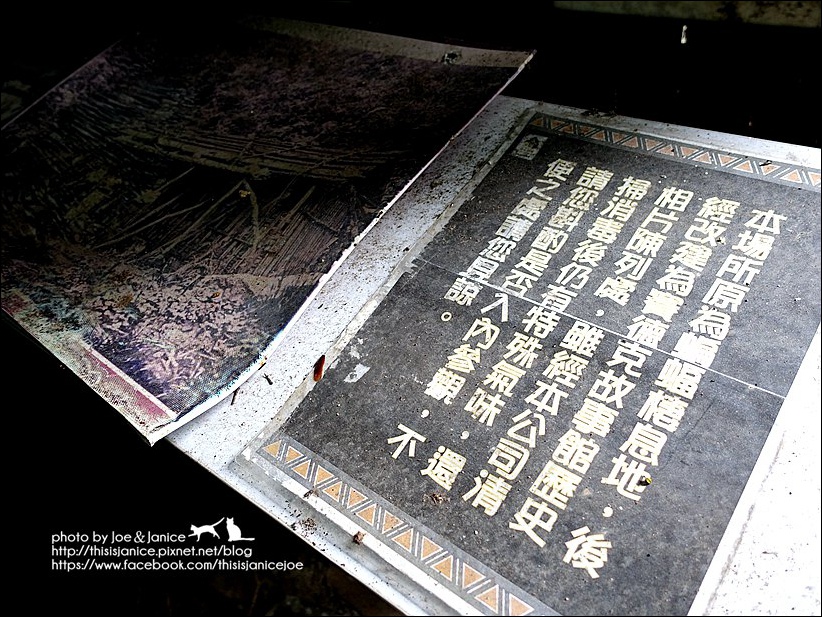 本場所原為蝙蝠棲息地，後
經改建為賽德克故事館歷史
相片陳列處，雖經本公司清
掃消毒後仍有特殊氣味，還
請您斟酌是否入內參觀，不
便之處請您見諒。
photo by Joe & Janice
http://thisisjanice.pixnet.net/blog
https://www.facebook.com/thisisjanicejoe